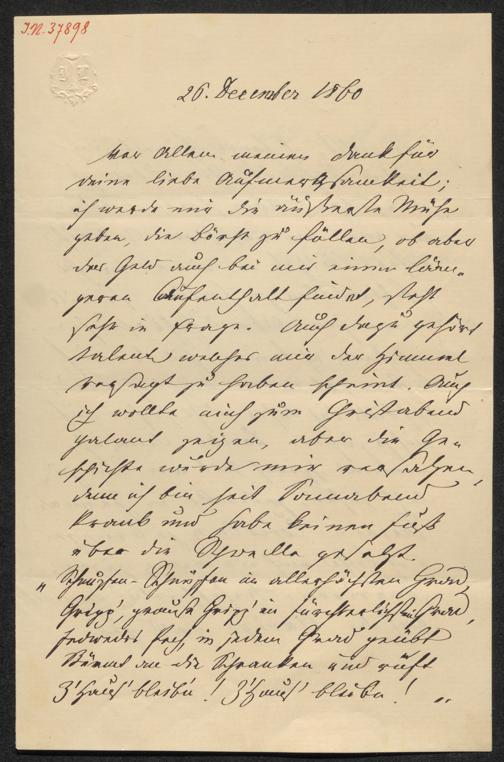 I.N. 37898
26. December 1860
Vor Allem meinen Dank für
deine liebe Aufmerksamkeit;
ich werde mir die äußerste Mühe
geben, die Börse zu füllen, ob aber
das Geld auch bei mir einen län-
geren Aufenthalt findet, steht
sehr in Frage. Auch dazu gehört
Talent welches mir der Himmel
versagt zu haben scheint. Auch
ich wollte mich zum Christabend
galant zeigen, aber die Ge-
schichte wurde mir versalzen,
denn ich bin seit Sonnabend
krank und habe keinen Fuß
über die Schwelle gesetzt.
„Schnupfen-Schnupfen im allerhöchsten Grad,
Gripp', Gripp' im fürchterlichsten Grad,
jedwedes Pech, in jedem Grad geübt
Stürmt an die Schranken und ruft
Z'Haus' bleibn! Z'Haus' bleibn! "